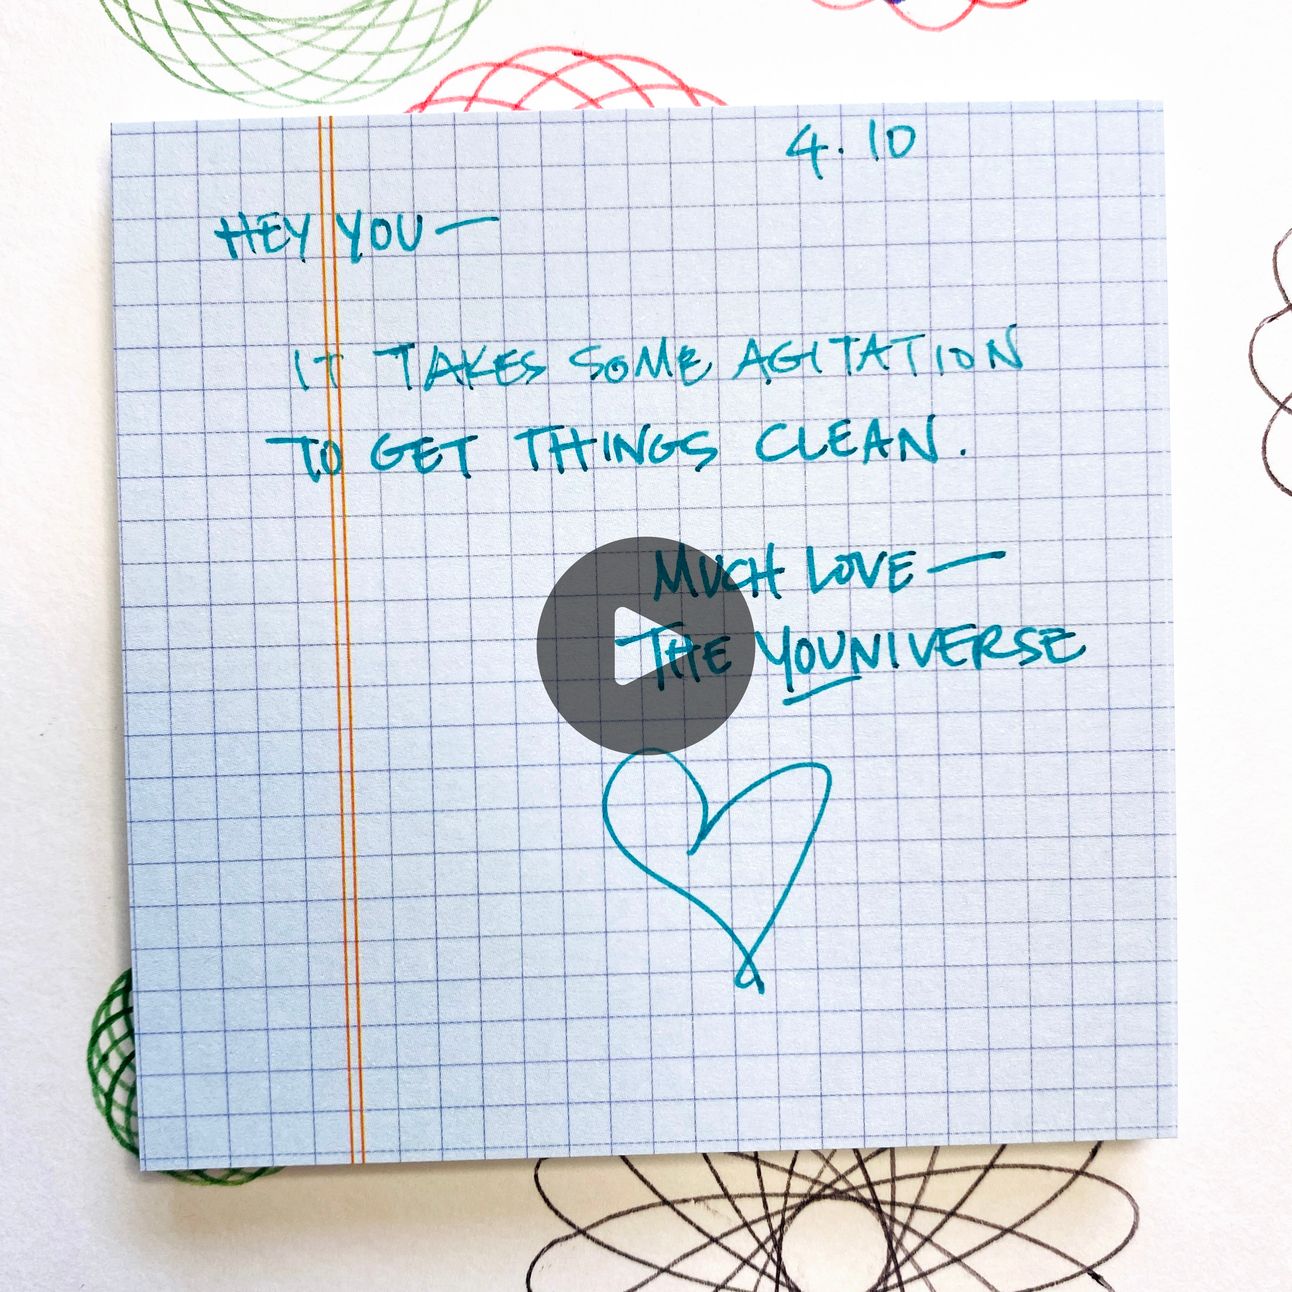 4.10
HEY YOU—
IT TAKES SOME AGITATION
TO GET THINGS CLEAN.
MUCH LOVE—
THE YOUNIVERSE